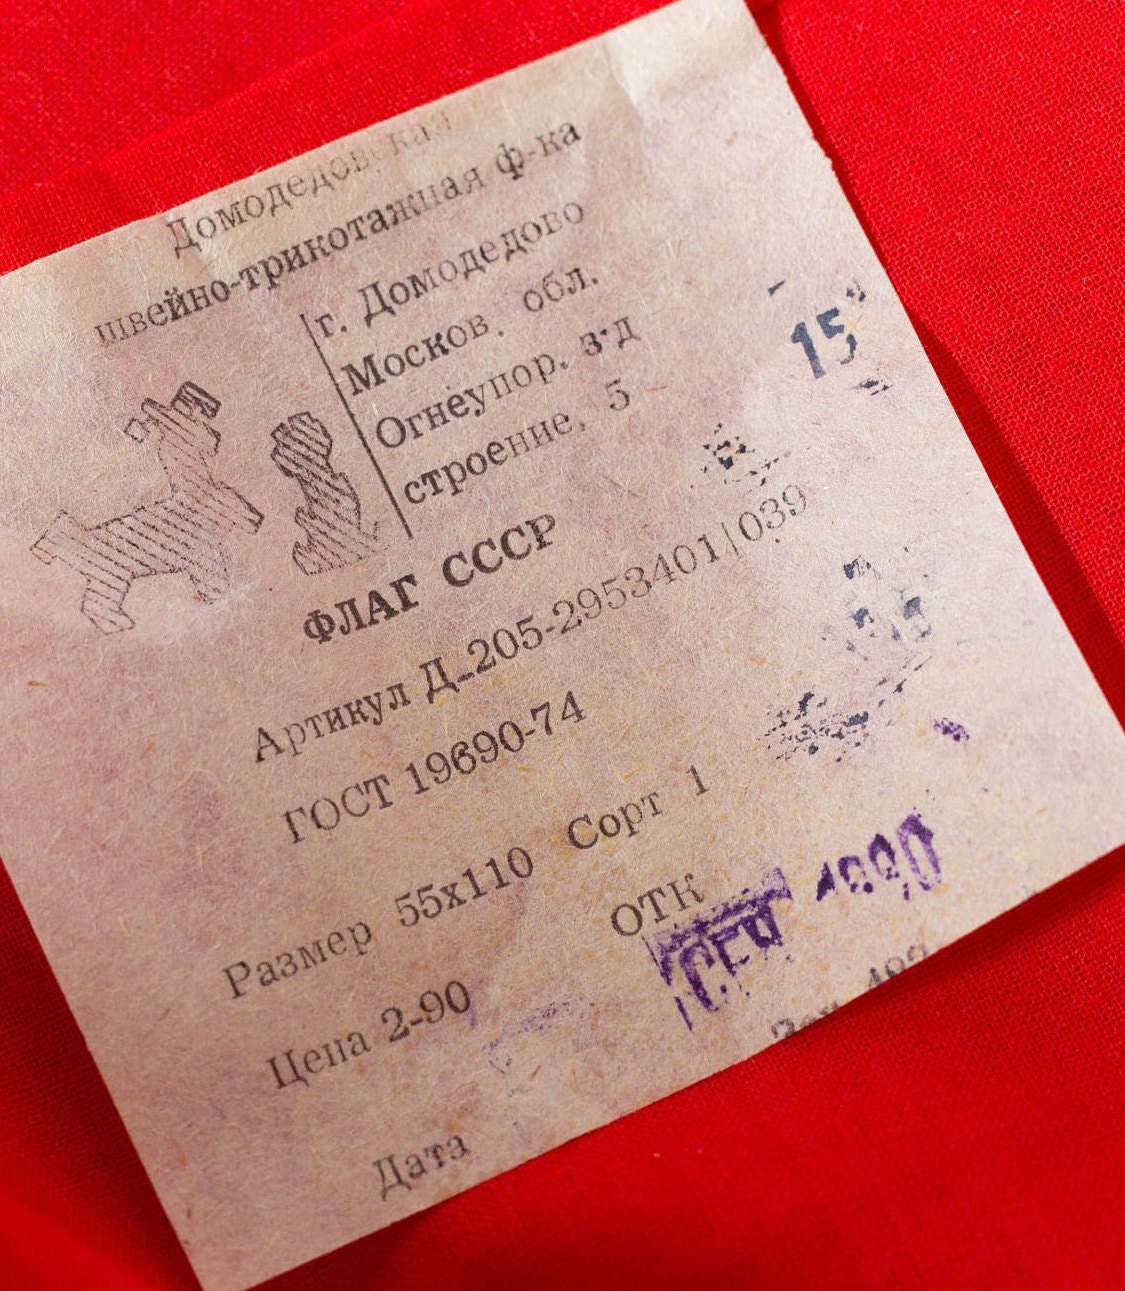 Домодедовская
швейно-трикотажная ф-ка
г. Домодедово
Москов. обл.
Огнеупор. з-д
строение, 5
15
ФЛАГ СССР
Артикул Д-205-2953401|039
ГОСТ 19690-74
Размер 55х110 Сорт 1
Цена 2-90 ОТК
СЕН 1990
Дата